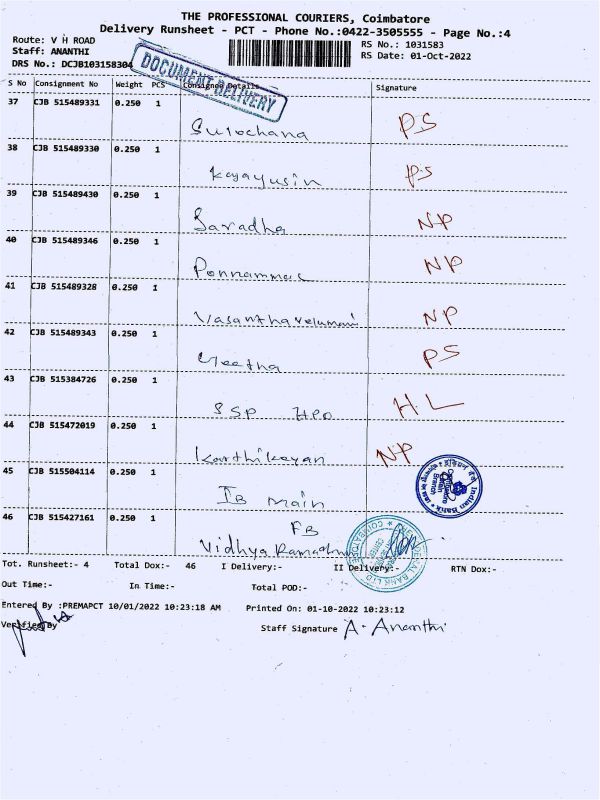 THE PROFESSIONAL COURIERS, Coimbatore
Delivery Runsheet - PCT - Phone No.:0422-3505555 - Page No.:4
Route: V H ROAD RS No.: 1031583
Staff: ANANTHI RS Date: 01-Oct-2022
DRS No.: DCJB103158304
DOCUMENT DELIVERY
S No Consignment No Weight PCS Consignee Details Signature
37 CJB 515489331 0.250 1
Sulochana PS
38 CJB 515489330 0.250 1
PS
39 CJB 515489430 0.250 1
Saradha NP
40 CJB 515489346 0.250 1
Ponnammal NP
41 CJB 515489328 0.250 1
Vasanthavelumani NP
42 CJB 515489343 0.250 1
Geetha PS
43 CJB 515384726 0.250 1
SSP HPO H.L
44 CJB 515472019 0.250 1
Karthikeyan NP
45 CJB 515504114 0.250 1
IB main
Indian Bank
46 CJB 515427161 0.250 1
FB
Vidhya
Tot. Runsheet:- 4 Total Dox:- 46 I Delivery:- II Delivery:- RTN Dox:-
Out Time:- In Time:- Total POD:-
Entered By :PREMAPCT 10/01/2022 10:23:18 AM Printed On: 01-10-2022 10:23:12
Verified By Staff Signature A. Ananthi